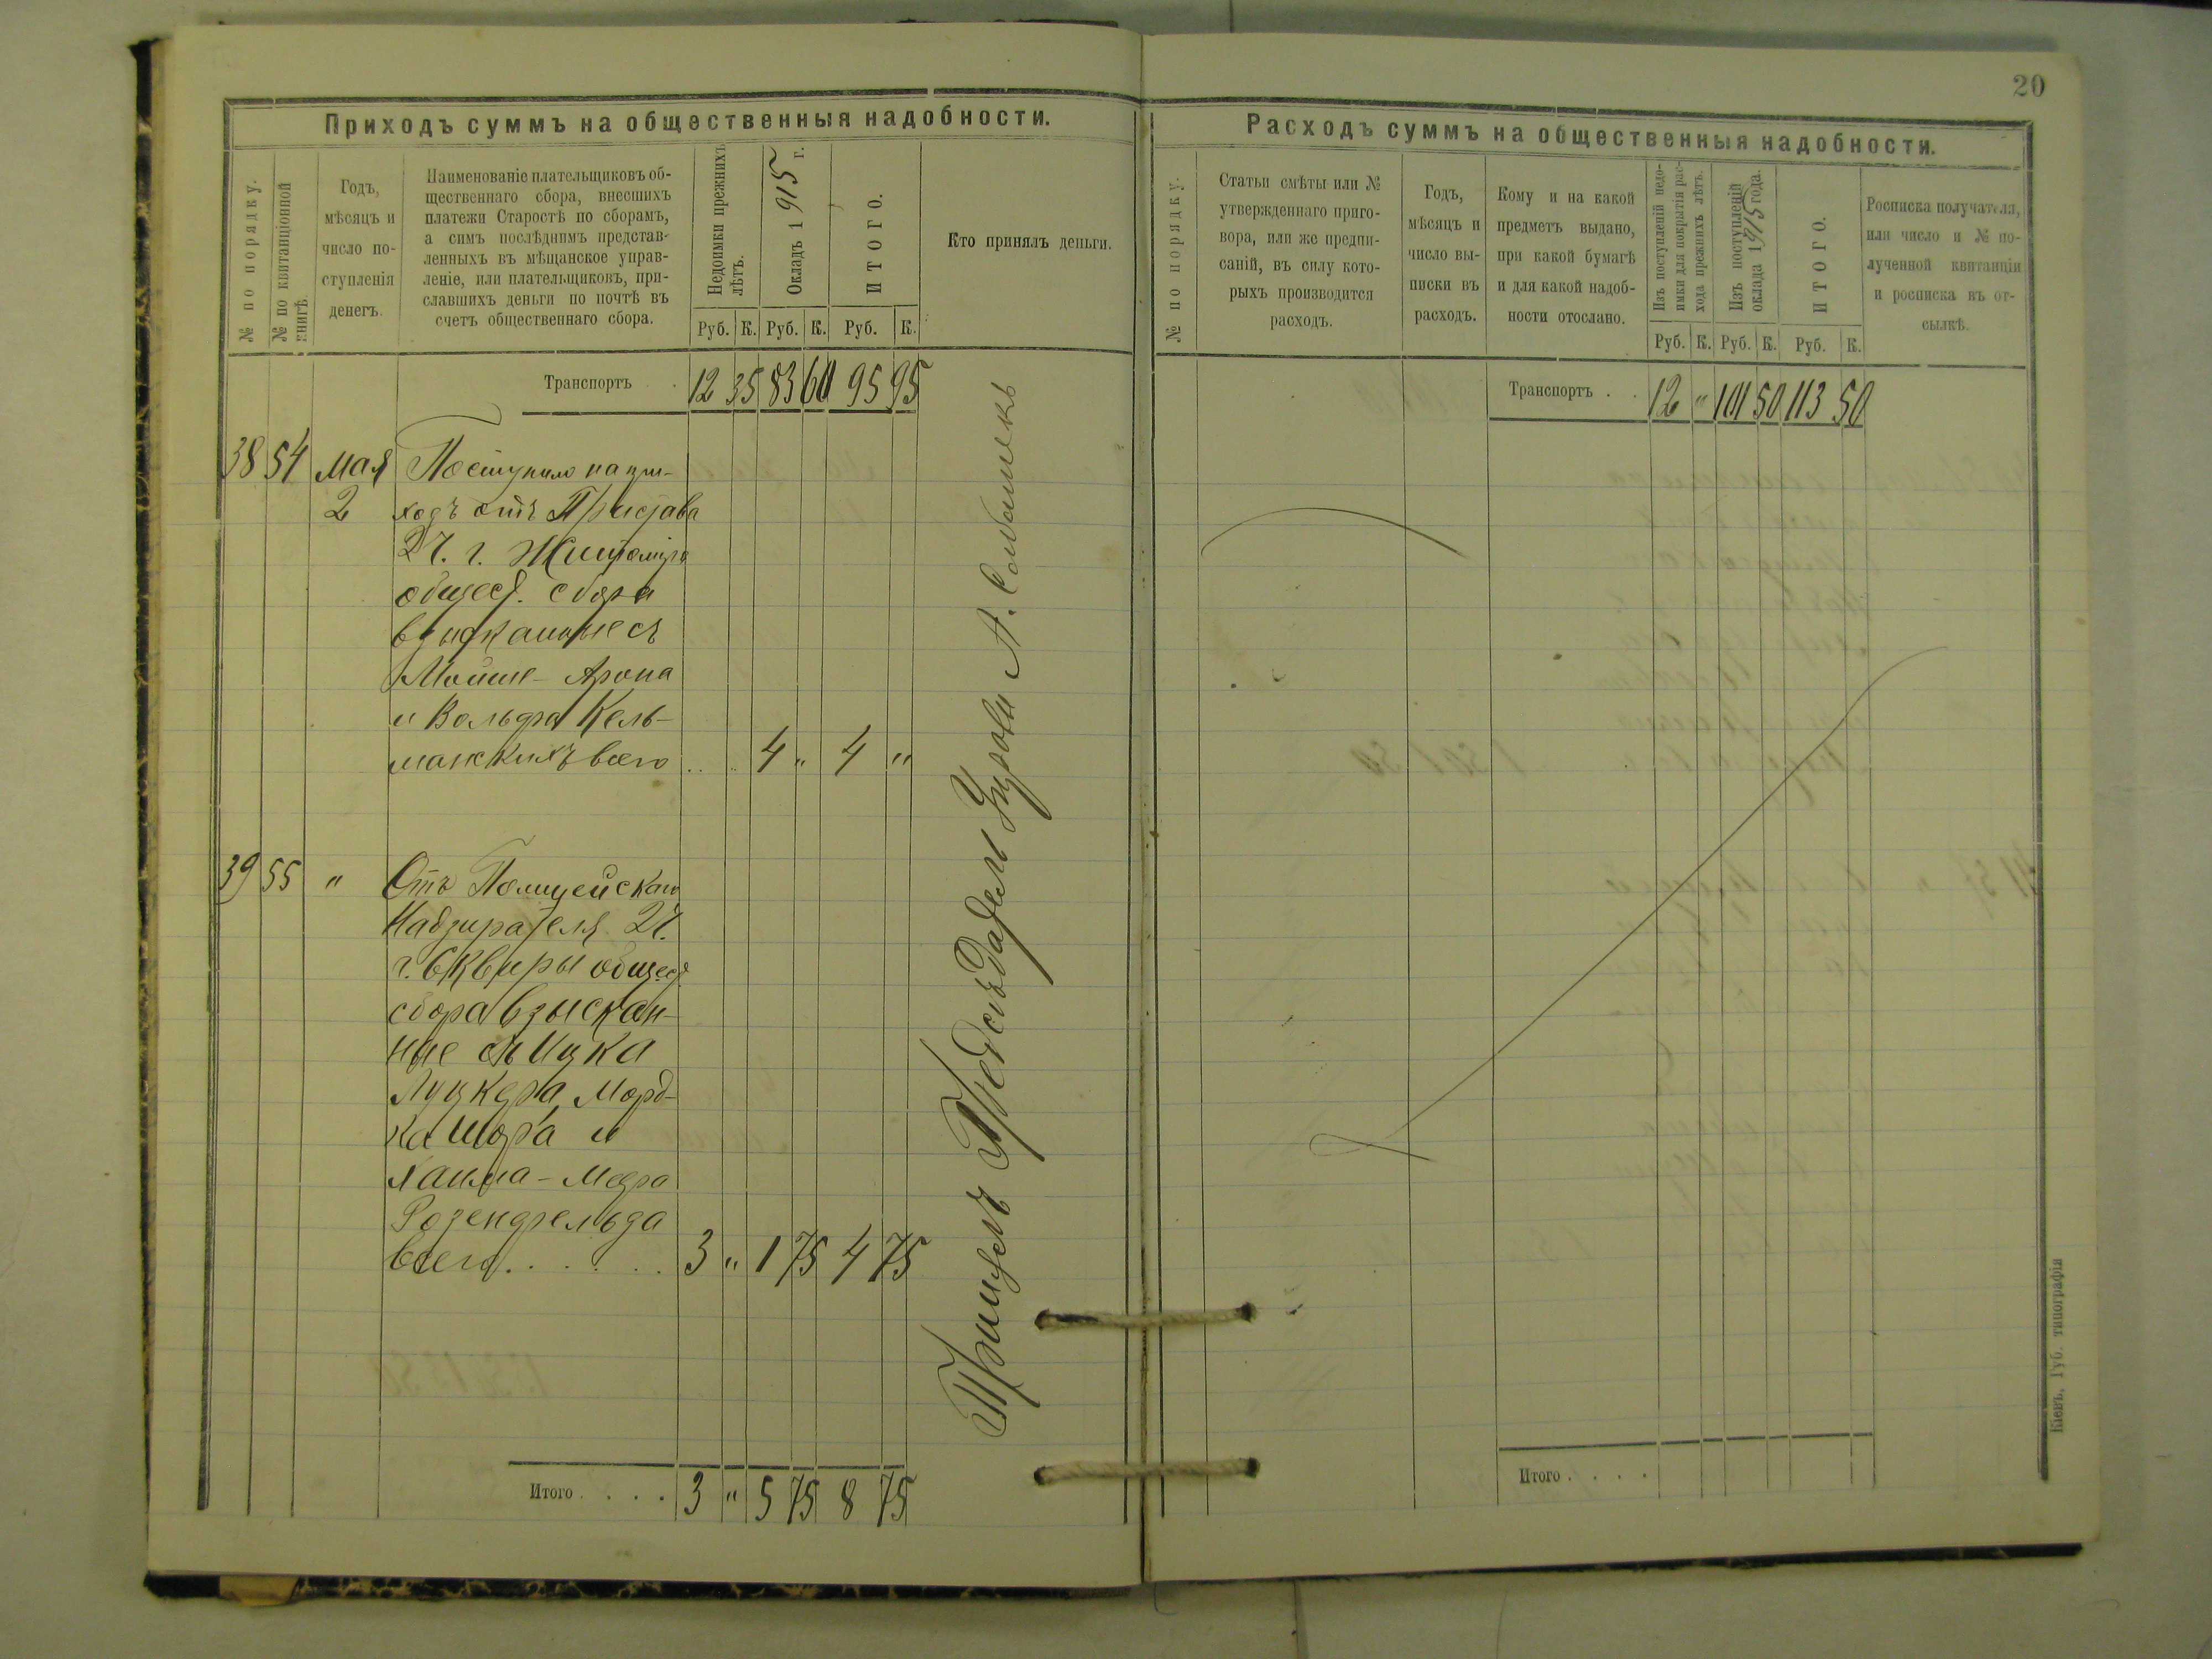 20
Приходъ суммъ на общественныя надобности.
№ по порядку.
№ по квитанціонной
книгѣ.
Годъ,
мѣсяцъ и
число по-
ступленія
денегъ.
Наименованіе плательщиковъ об-
щественнаго сбора, внесшихъ
платежи Старостѣ по сборамъ,
а симъ послѣднимъ представ-
ленныхъ въ мѣщанское управ-
леніе, или плательщиковъ, при-
славшихъ деньги по почтѣ въ
счетъ общественнаго сбора.
Недоимки прежнихъ
лѣтъ.
Окладъ 1915 г.
ИТОГО.
Кто принялъ деньги.
Руб. К. Руб. К. Руб. К.
Транспортъ . . 12 35 83 60 95 95
38 54 Мая Поступило на при-
2 ходъ отъ Пристава
2 ч. г. Житоміра
общест. сбора
взысканные съ
Мойше-Арона
и Вольфа Кель-
манскихъ всего . . 4 " 4 "
39 55 " Отъ Полицейскаго
Надзирателя 2 ч.
г. Сквиры общест.
сбора взыскан-
ные съ Ицка
Луцкера, Морд-
ка Шора и
Хаима-Меера
Розенфельда
всего. . . . . . 3 " 1 75 4 75
Принялъ Предсѣдатель Управы А.
Итого . . . . 3 " 5 75 8 75
Расходъ суммъ на общественныя надобности.
№ по порядку.
Статьи смѣты или №
утвержденнаго приго-
вора, или же предпи-
саній, въ силу кото-
рыхъ производится
расходъ.
Годъ,
мѣсяцъ и
число вы-
писки въ
расходъ.
Кому и на какой
предметъ выдано,
при какой бумагѣ
и для какой надоб-
ности отослано.
Изъ поступленій недо-
имки для покрытія рас-
хода прежнихъ лѣтъ.
Изъ поступленій
оклада 1915 года.
ИТОГО.
Росписка получателя,
или число и № по-
лученной квитанціи
и росписка въ от-
сылкѣ.
Руб. К. Руб. К. Руб. К.
Транспортъ . . 12 " 101 50 113 50
Итого . . . .
Кіевъ, Губ. типографія